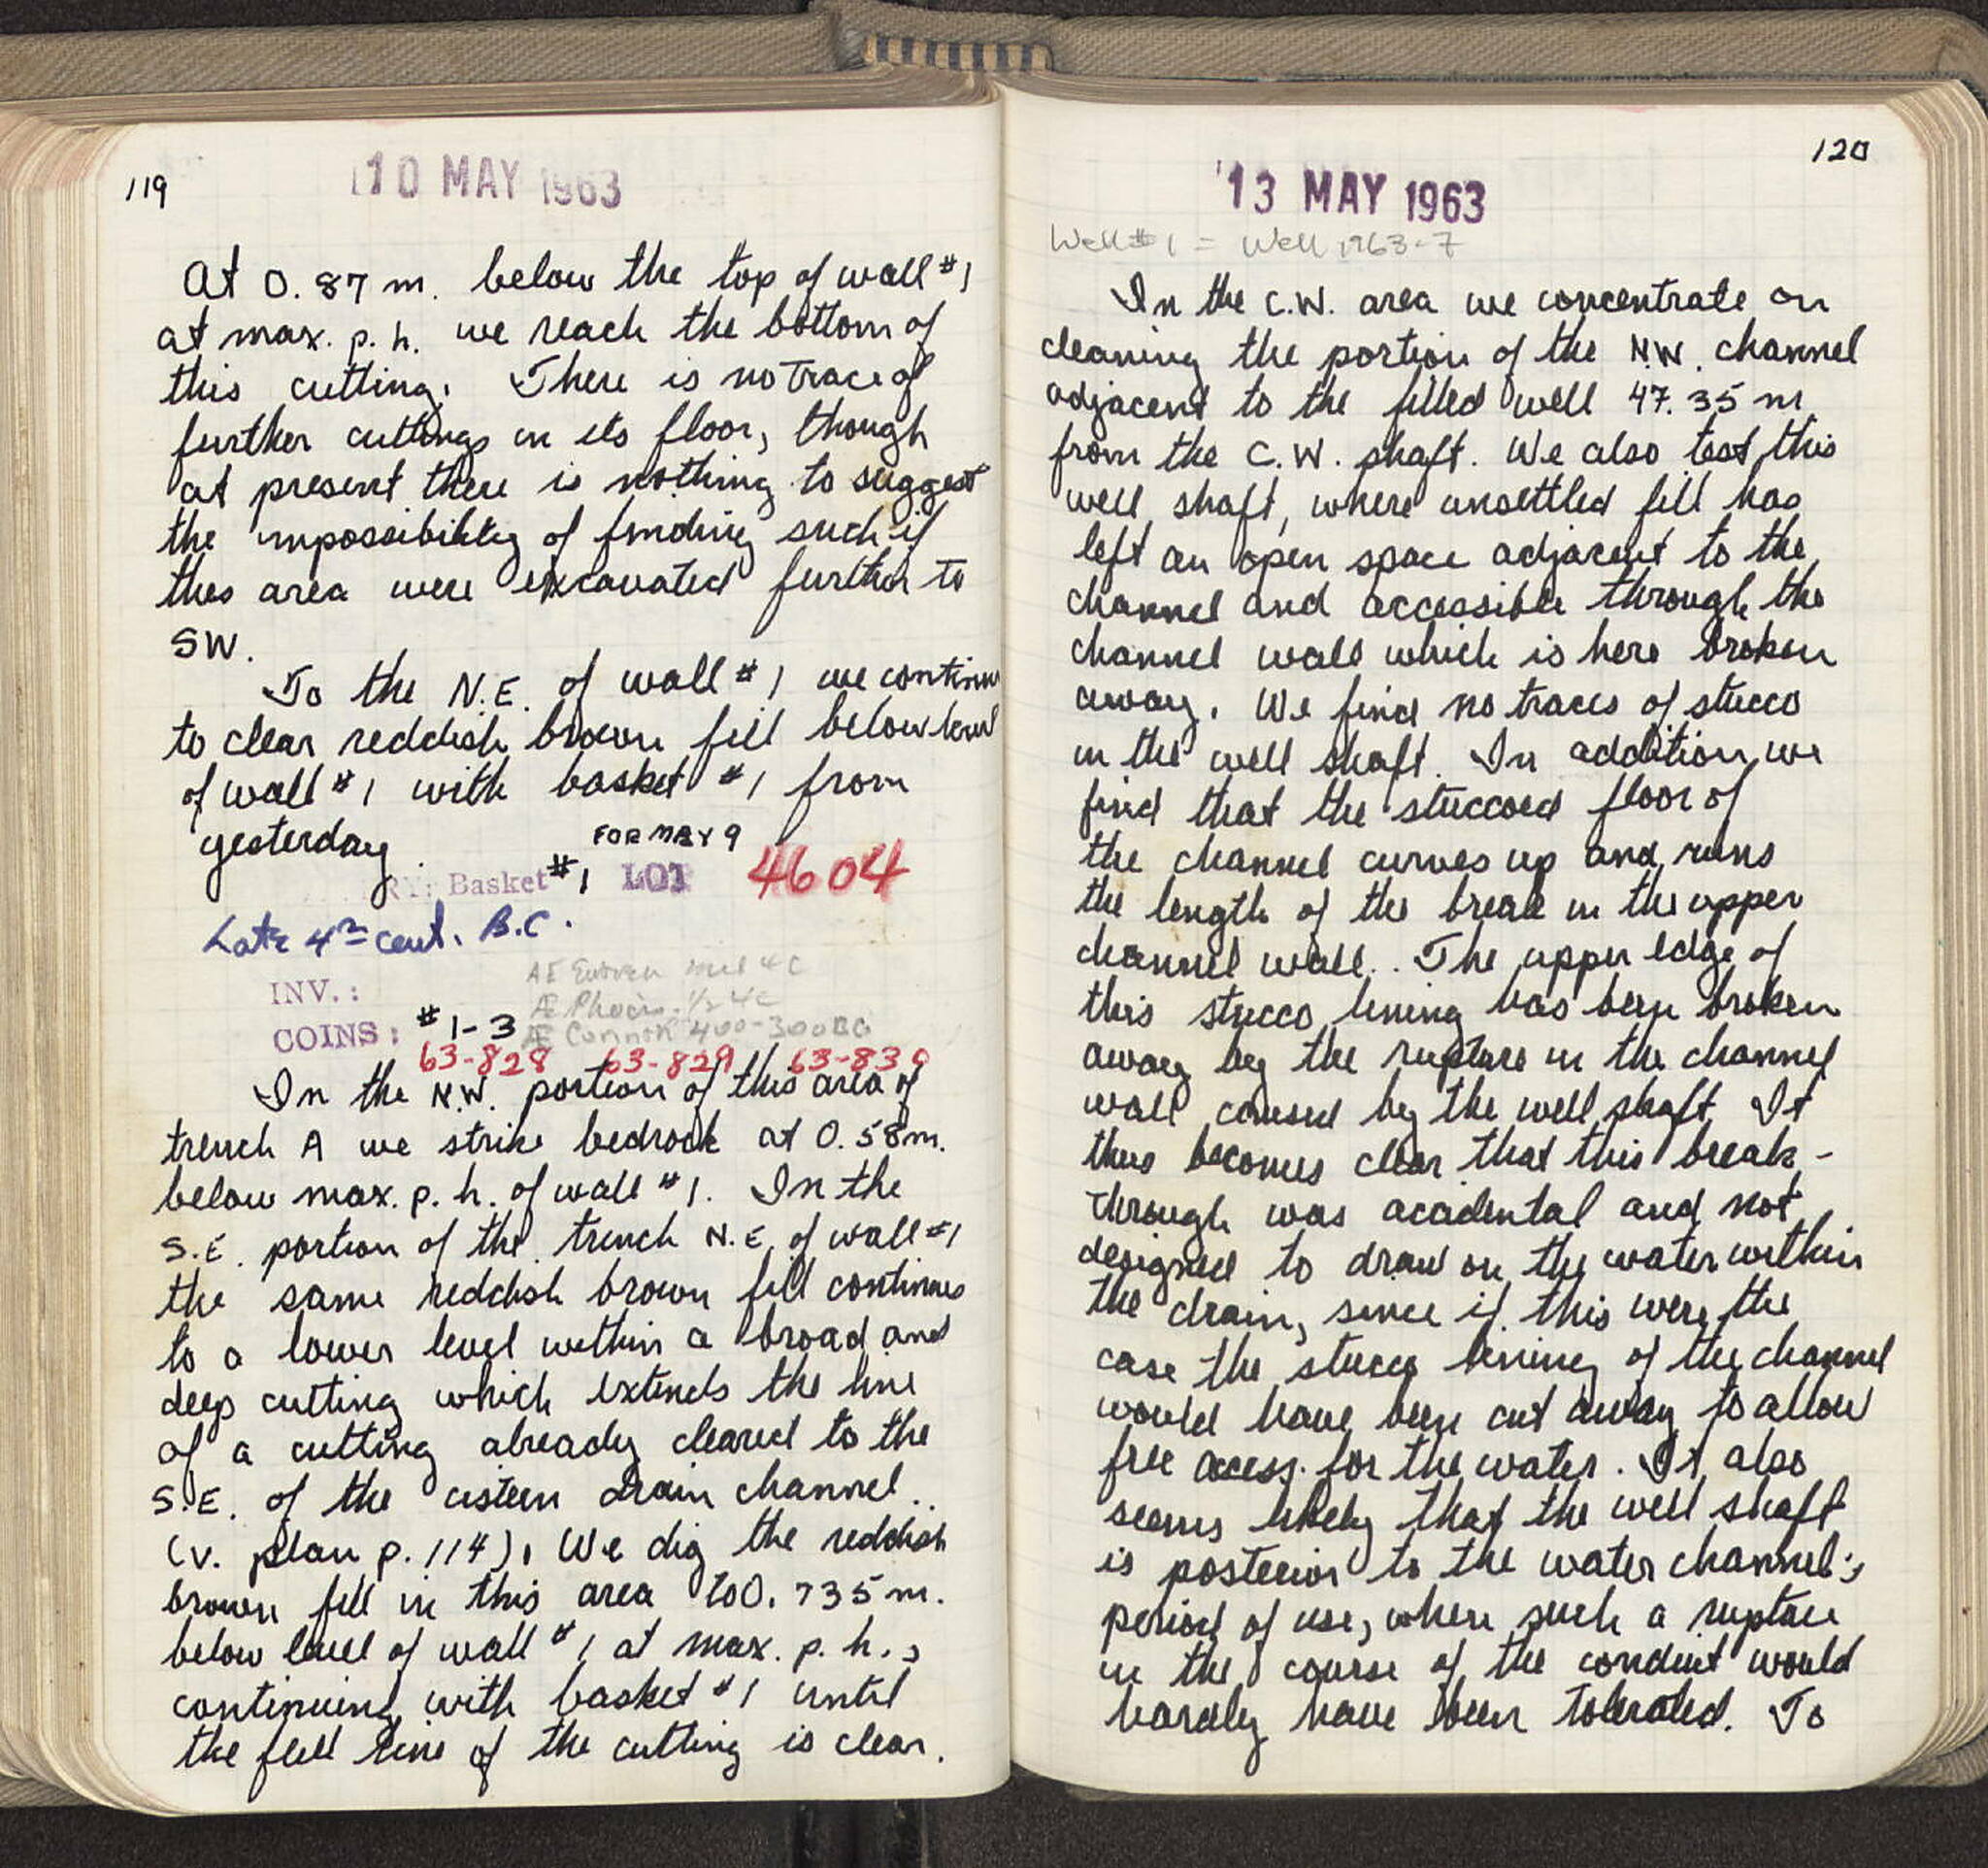 119
10 MAY 1963
At 0.87 m. below the top of wall #1
at max. p. h. we reach the bottom of
this cutting. There is no trace of
further cuttings in its floor, though
at present there is nothing to suggest
the impossibility of finding such if
this area were excavated further to
SW.
To the N.E. of wall #1 we continue
to clear reddish brown fill below level
of wall #1 with basket #1 from
yesterday.
FOR MAY 9
RY: Basket #1 LOT 4604
Late 4th cent. B.C.
INV.:
COINS: #1-3
AE 4C
AE Phocis 1/2 4C
AE Corinth 400-300 BC
63-828 63-829 63-830
In the N.W. portion of this area of
trench A we strike bedrock at 0.58m.
below max. p. h. of wall #1. In the
S.E. portion of the trench N.E. of wall #1
the same reddish brown fill continues
to a lower level within a broad and
deep cutting which extends the line
of a cutting already cleared to the
S.E. of the cistern drain channel..
(v. plan p. 114). We dig the reddish
brown fill in this area to 0.735m.
below level of wall #1 at max. p. h.,
continuing with basket #1 until
the full line of the cutting is clear.
120
13 MAY 1963
Well #1 = Well 1963-7
In the C.W. area we concentrate on
cleaning the portion of the N.W. channel
adjacent to the filled well 47.35 m.
from the C.W. shaft. We also test this
well shaft, where unsettled fill has
left an open space adjacent to the
channel and accessible through the
channel wall which is here broken
away. We find no traces of stucco
in the well shaft. In addition we
find that the stuccoed floor of
the channel curves up and runs
the length of the break in the upper
channel wall. The upper edge of
this stucco lining has been broken
away by the rupture in the channel
wall caused by the well shaft. It
thus becomes clear that this break-
through was accidental and not
designed to draw on the water within
the drain, since if this were the
case the stucco lining of the channel
would have been cut away to allow
free access for the water. It also
seems likely that the well shaft
is posterior to the water channel's
period of use, where such a rupture
in the course of the conduit would
hardly have been tolerated. To